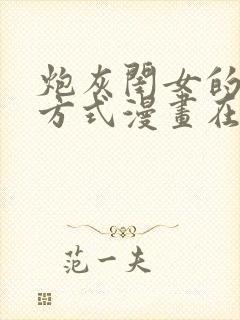 炮灰闺女的
方式漫畫在
范一夫